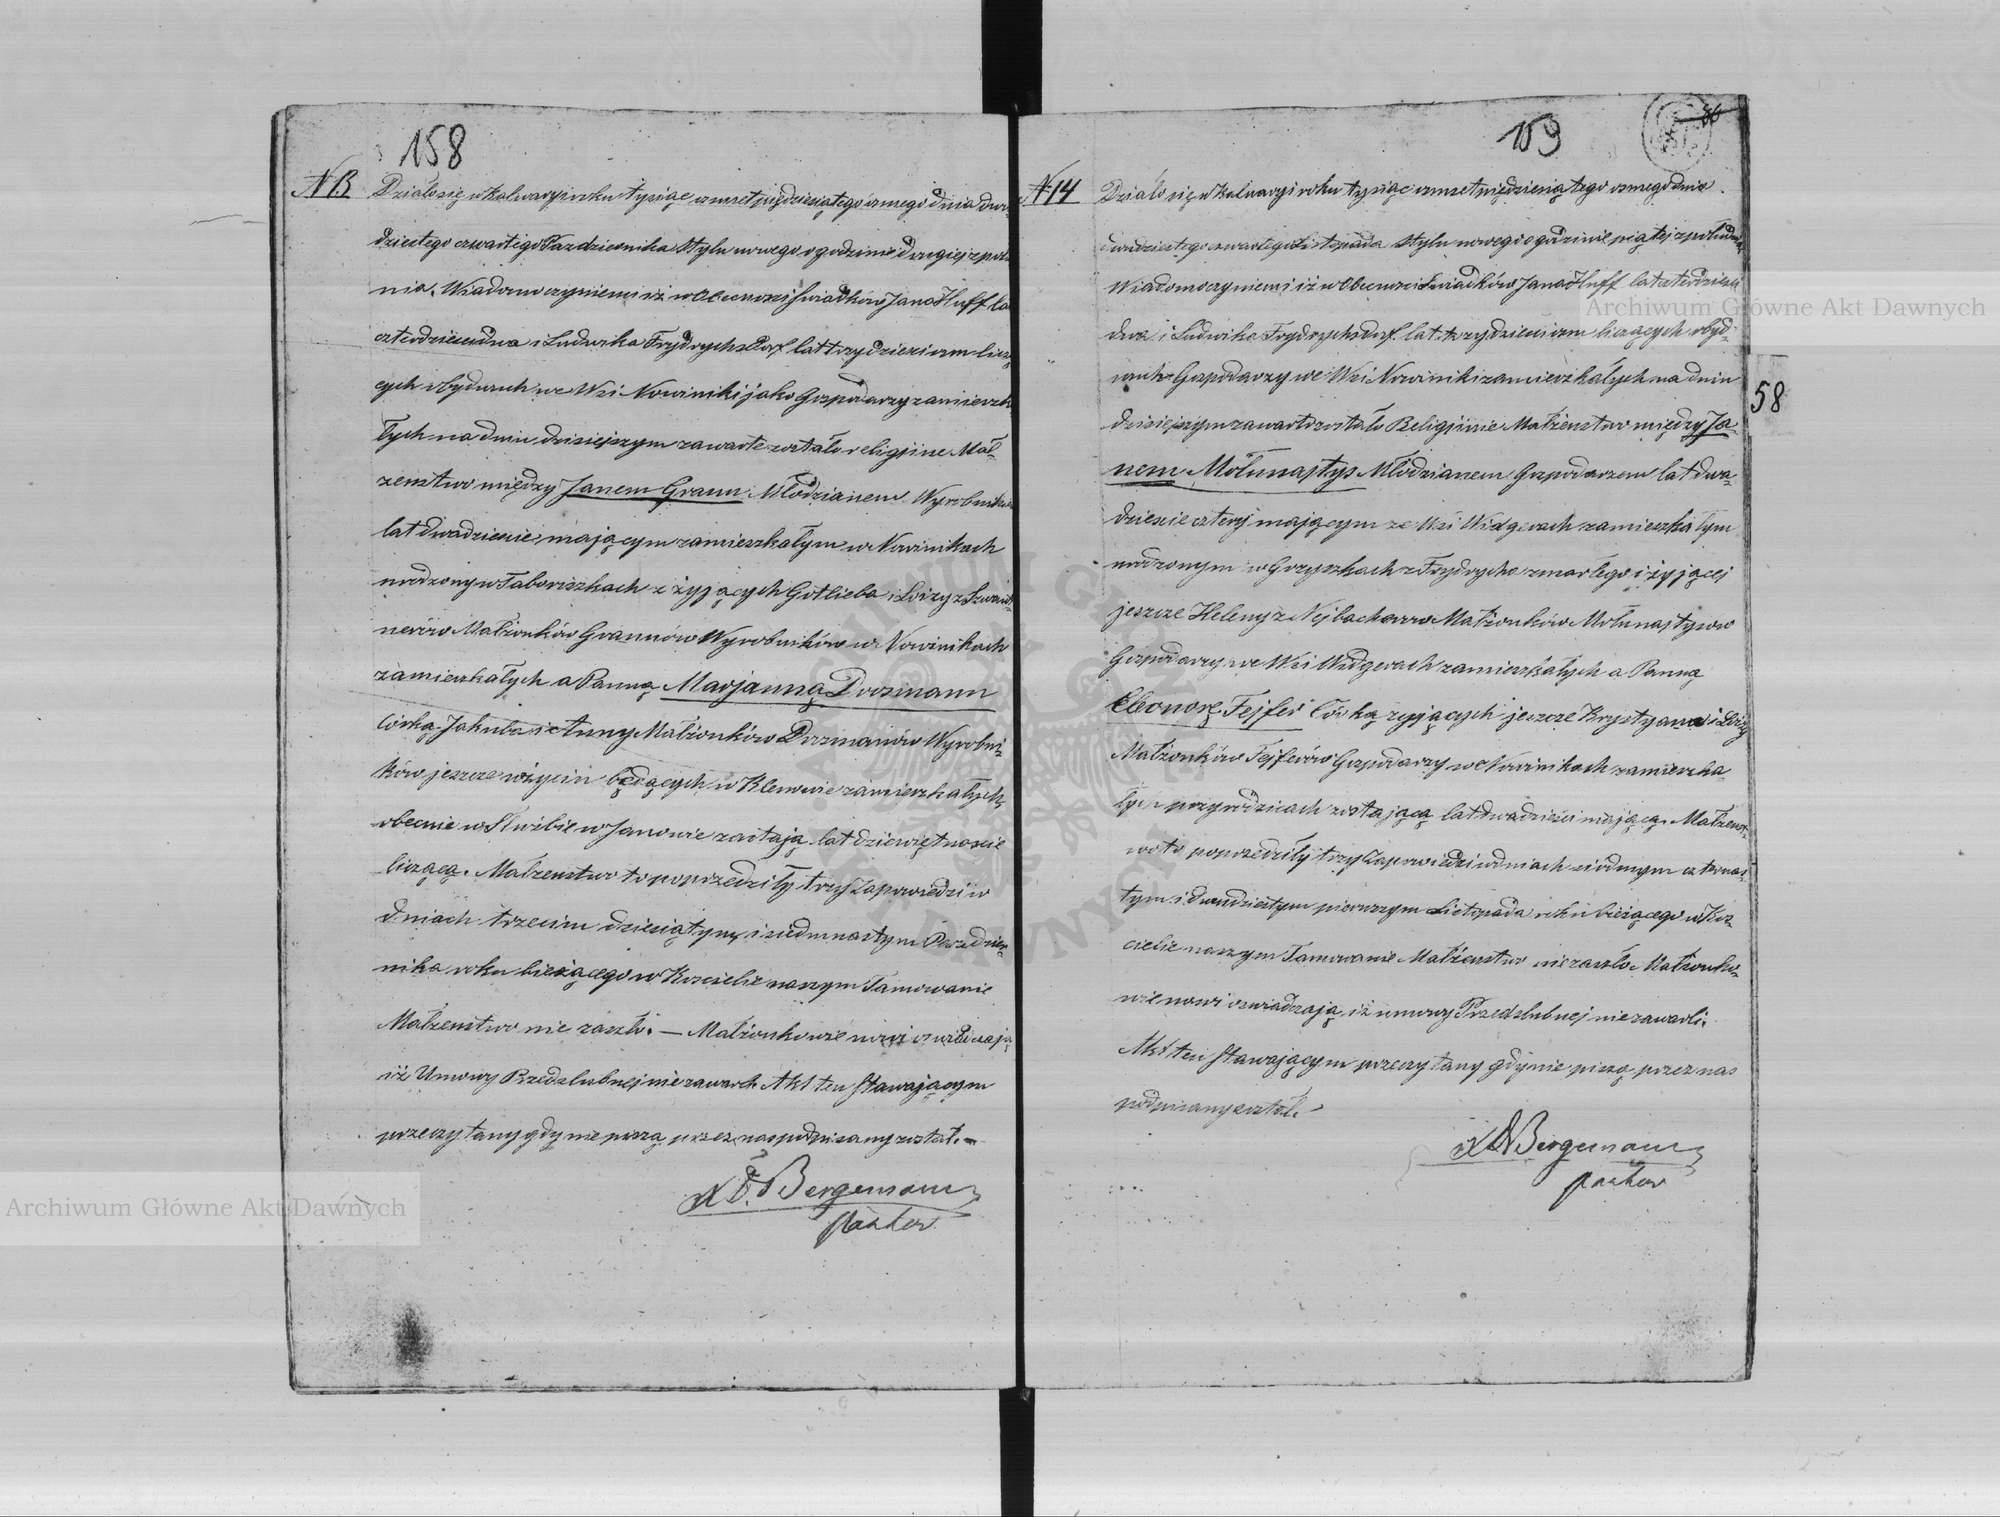 158
N 13
Działo się w Kalwaryi roku tysiąc osmset piędziesiątego ósmego dnia dwu-
dziestego czwartego Października Stylu nowego o godzinie drugiej z połu
nia. Wiadomo czyniemy iż w Obecności Świadków Jana Huff la
czterdzieści dwa i Ludwika Frydrychsdorf lat trzydzieści osm licz
cych obydwuch we Wsi Nowiniki jako Gospodarzy zamieszk
łych na dniu dzisiejszym zawarte zostało religijne Mał-
żenstwo między Janem Graun Młodzianem Wyrobnikiem
lat dwadzieście mającym zamieszkałym w Nowinikach
urodzony w Taboriszkach z żyjących Gotlieba i Loizy z Szwait
nerów Małżonków Graunów Wyrobników w Nowinikach
zamieszkałych a Panną Marjanną Dorzmann
Córką Jakuba i Anny Małżonków Dorzmanów Wyrobni-
ków jeszcze w życiu będących w Klenowie zamieszkałych,
obecnie w Służbie w Janowie zostają lat dziewiętnaście
liczącą. Małżenstwo to poprzedziły trzy Zapowiedzi w
dniach trzecim dziesiątym i siedmnastym Paździer-
nika roku bieżącego w Kosciele naszym Tamowanie
Małżenstwo nie zaszło. — Małżonkowie nowi oswiadczają
iż Umowy Przedslubnej nie zawarli Akt ten Stawającym
przeczytany gdy nie piszą przez nas podpisany został. -
X D. Bergemann
Pastor
159
86
N 14
Działo się w Kalwaryi roku tysiąc osmset pięcdziesiątego osmego dnia
dwudziestego czwartego Listopada Stylu nowego o godzinie piątej z południa
Wiadomo czyniemy iż w Obecności Świadków Jana Huff lat czterdzieści
dwa i Ludwika Frydrychsdorf lat trzydzieści osm liczących obyd-
wuch Gospodarzy we Wsi Nowiniki zamieszkałych na dniu
dzisiejszym zawarto zostało Religijnie Małżenstwo między Ja-
nem Mołunajtys Młodzianem Gospodarzem lat dwa-
dzieście cztery mającym ze Wsi Widgerach zamieszkałym
urodzonym w Gryszkach z Frydrycha zmarłego i żyjącej
jeszcze Heleny z Nejbacherow Małżonków Mołunajtysow
Gospodarzy we Wsi Widgerach zamieszkałych a Panną
Eleonorę Fejfer Córką żyjących jeszcze Krystyana i Loizy
Małżonków Fejferów Gospodarzy w Nowinikach zamieszka-
łych przy rodzicach zostającą lat dwadzieści mającą. Małżenst-
wo to poprzedziły trzy Zapowiedzi w dniach siodmym czternas-
tym i dwudziestym pierwszym Listopada roku bieżącego w Kos-
ciele naszym Tamowanie Małżenstwo nie zaszło Małżonko-
wie nowi oswiadczają iż umowy Przedslubnej nie zawarli.
Akt ten Stawającym przeczytany gdy nie piszą przez nas
podpisany został. -
X D Bergemann
Pastor
58
Archiwum Główne Akt Dawnych
Archiwum Główne Akt Dawnych
ARCHIWUM GŁÓWNE AKT DAWNYCH